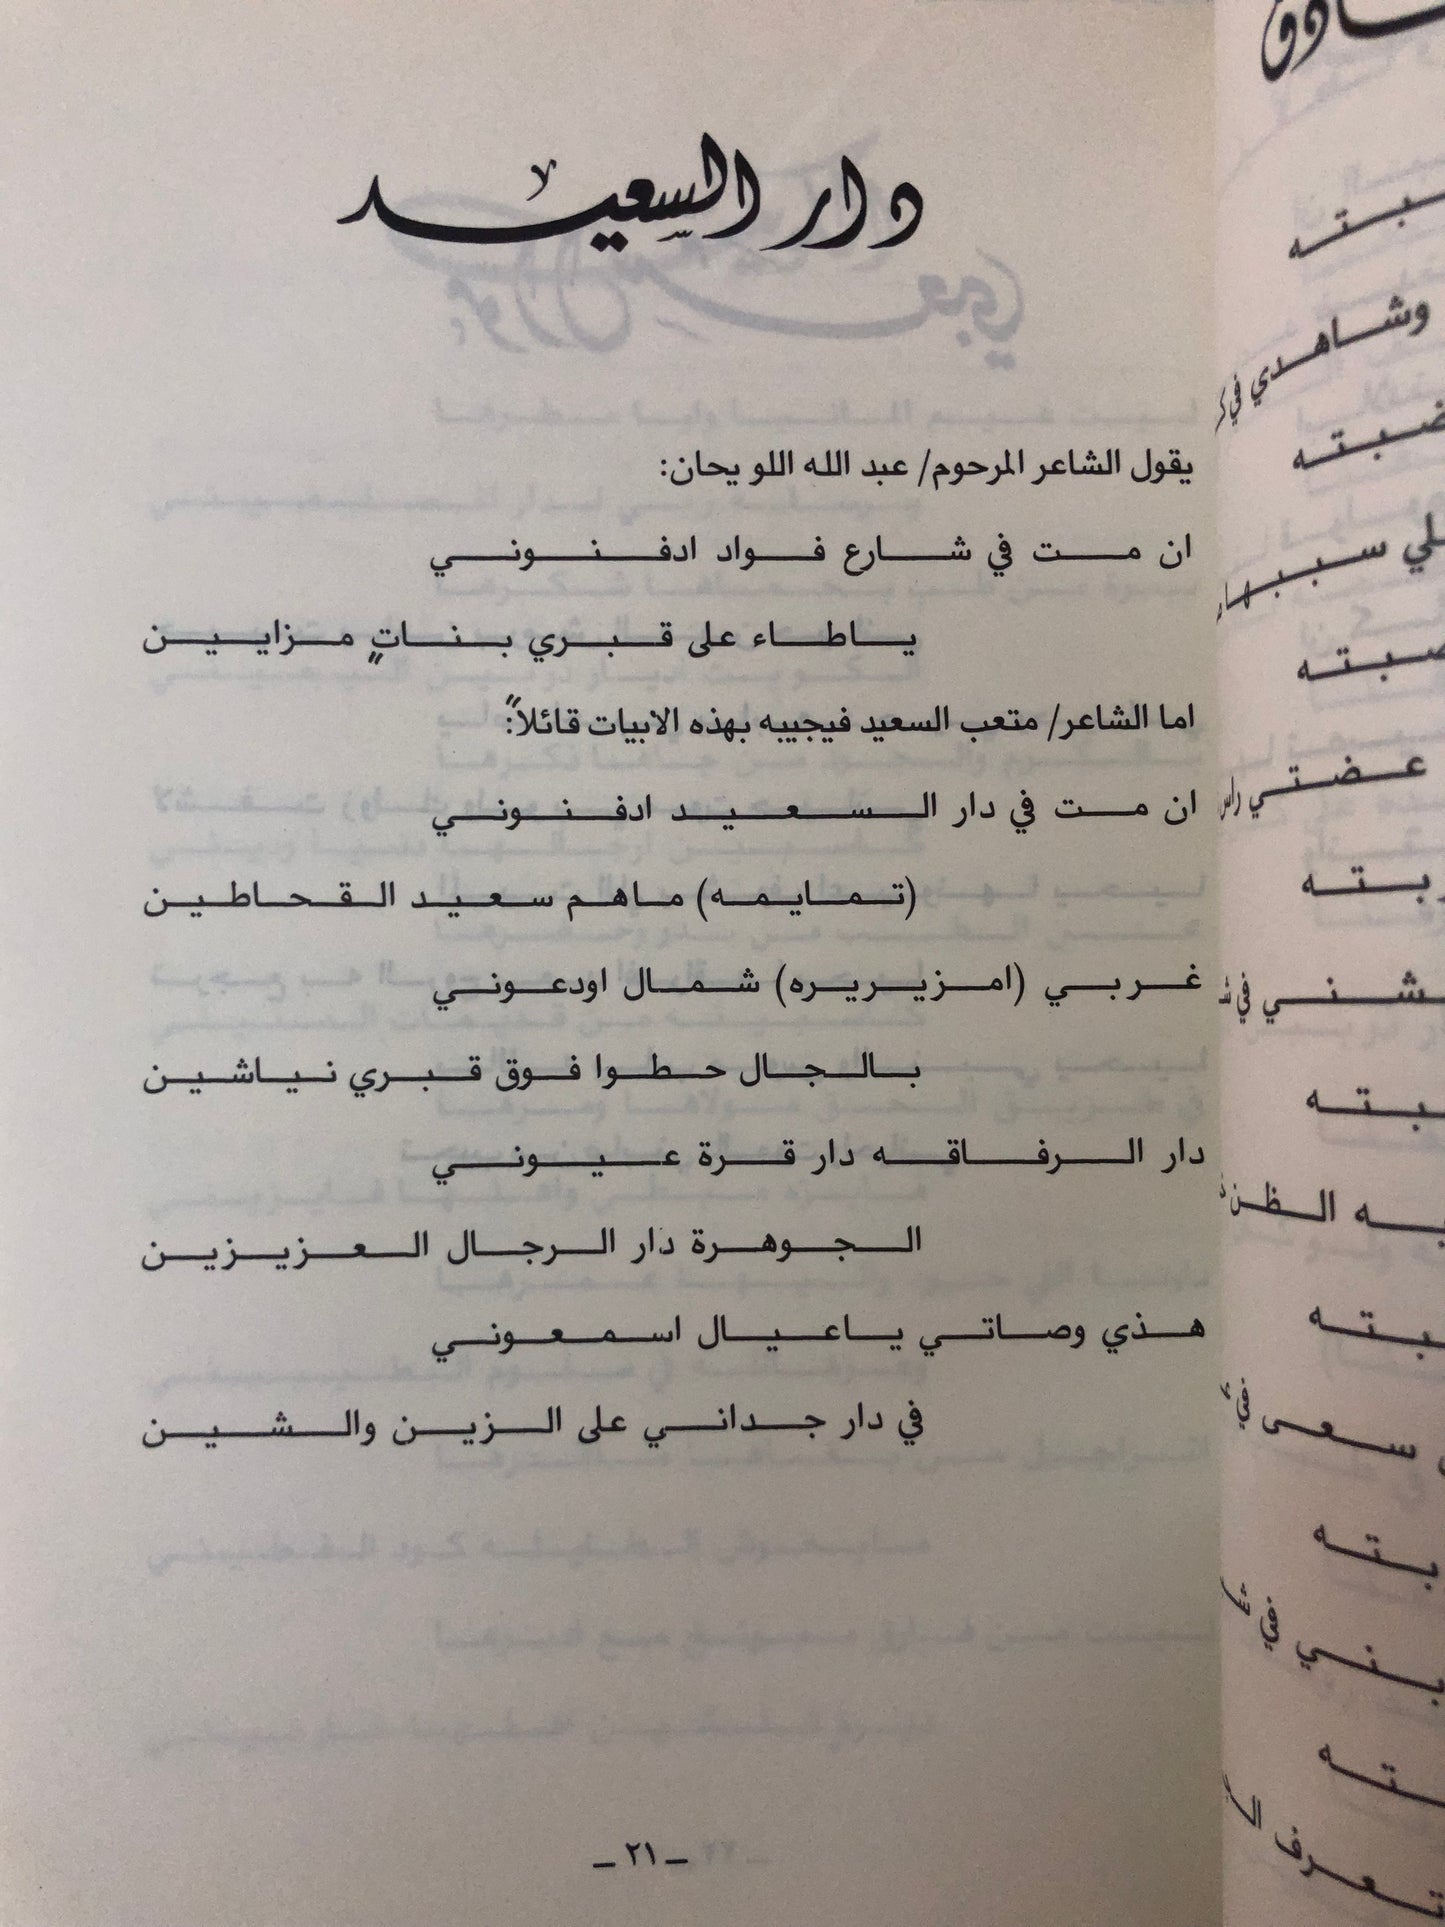 دار السعيد
يقول الشاعر المرحوم/ عبد الله اللو يحان:
ان مت في شارع فواد ادفنوني
ياطاء على قبري بناتٍ مزايين
اما الشاعر/ متعب السعيد فيجيبه بهذه الابيات قائلاً:
ان مت في دار السعيد ادفنوني
(تمايمه) ماهم سعيد القحاطين
غربي (امزيريره) شمال اودعوني
بالجال حطوا فوق قبري نياشين
دار الرفاقه دار قرة عيوني
الجوهرة دار الرجال العزيزين
هذي وصاتي ياعيال اسمعوني
في دار جداني على الزين والشين
ـ ٢١ ـ
وشاهدي في
عضتي